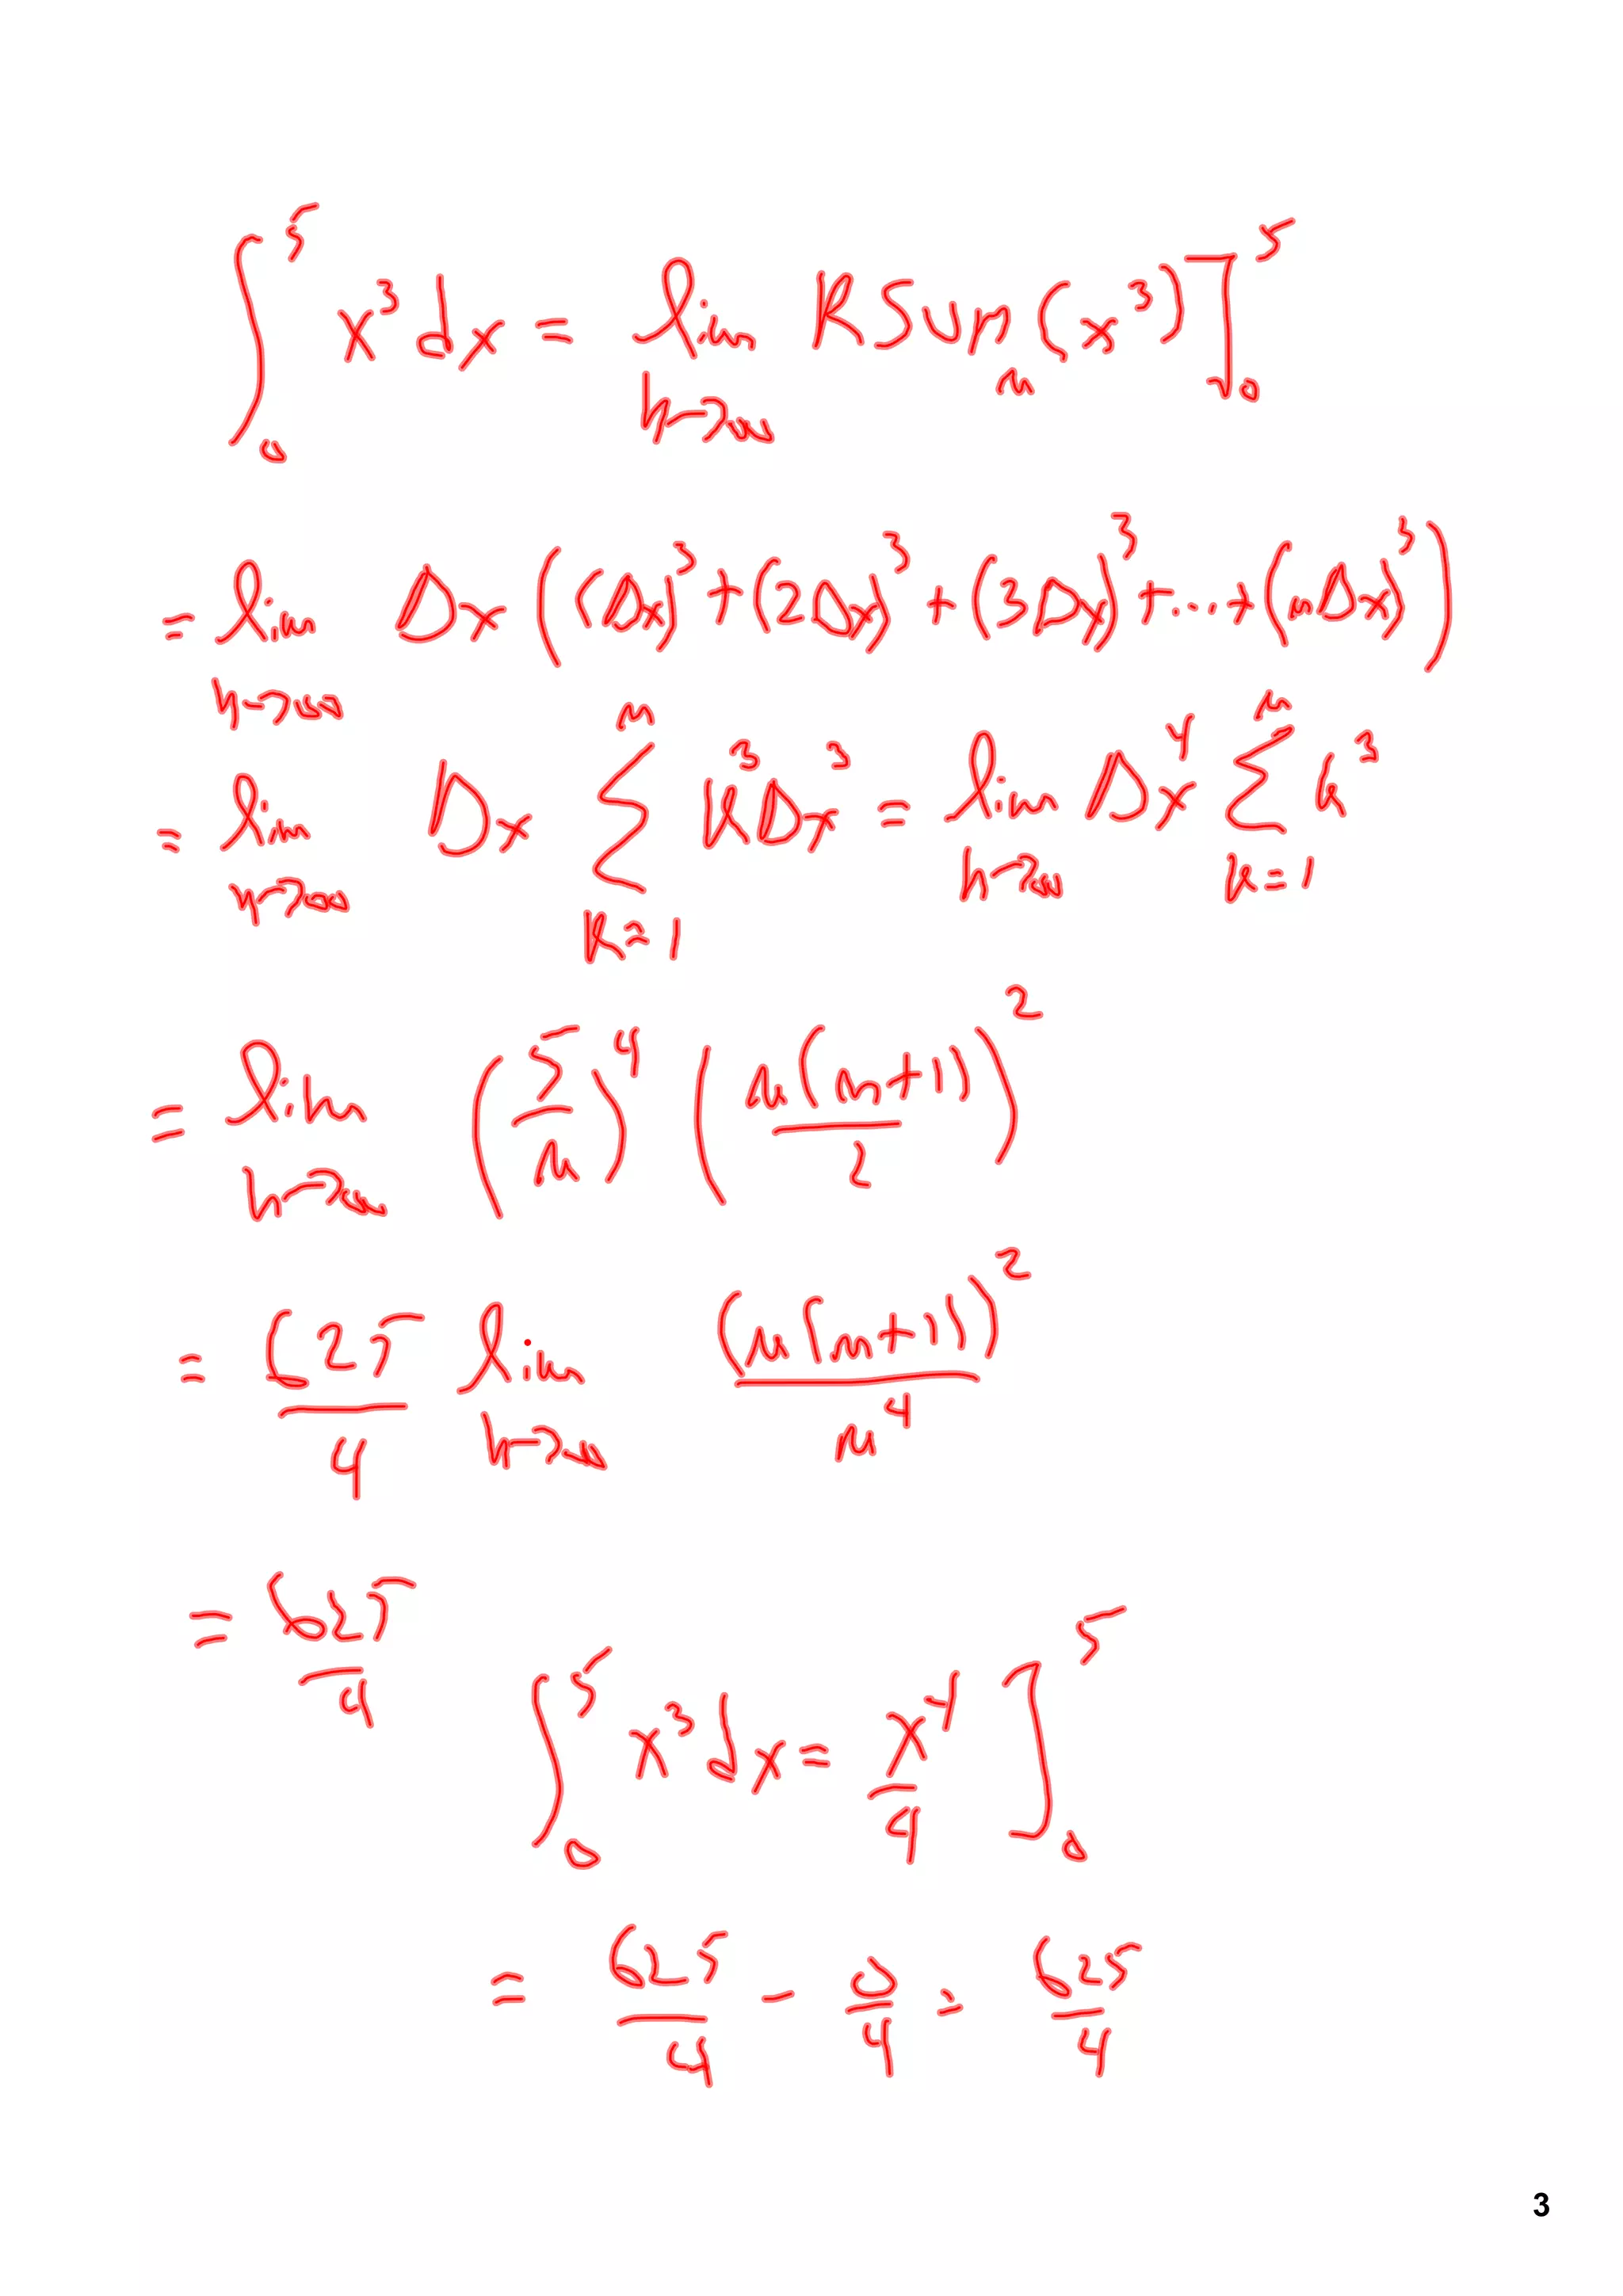 ∫₀⁵ x³dx = lim n→∞ RSum n (x³)]₀⁵
= lim n→∞ Δx((Δx)³+(2Δx)³+(3Δx)³+...+(nΔx)³)
= lim n→∞ Δx Σ k=1 n k³Δx³ = lim n→∞ Δx⁴ Σ k=1 n k³
= lim n→∞ (5/n)⁴ (n(n+1)/2)²
= 625/4 lim n→∞ (n(n+1))²/n⁴
= 625/4
∫₀⁵ x³dx = x⁴/4]₀⁵
= 625/4 - 0/4 = 625/4
3